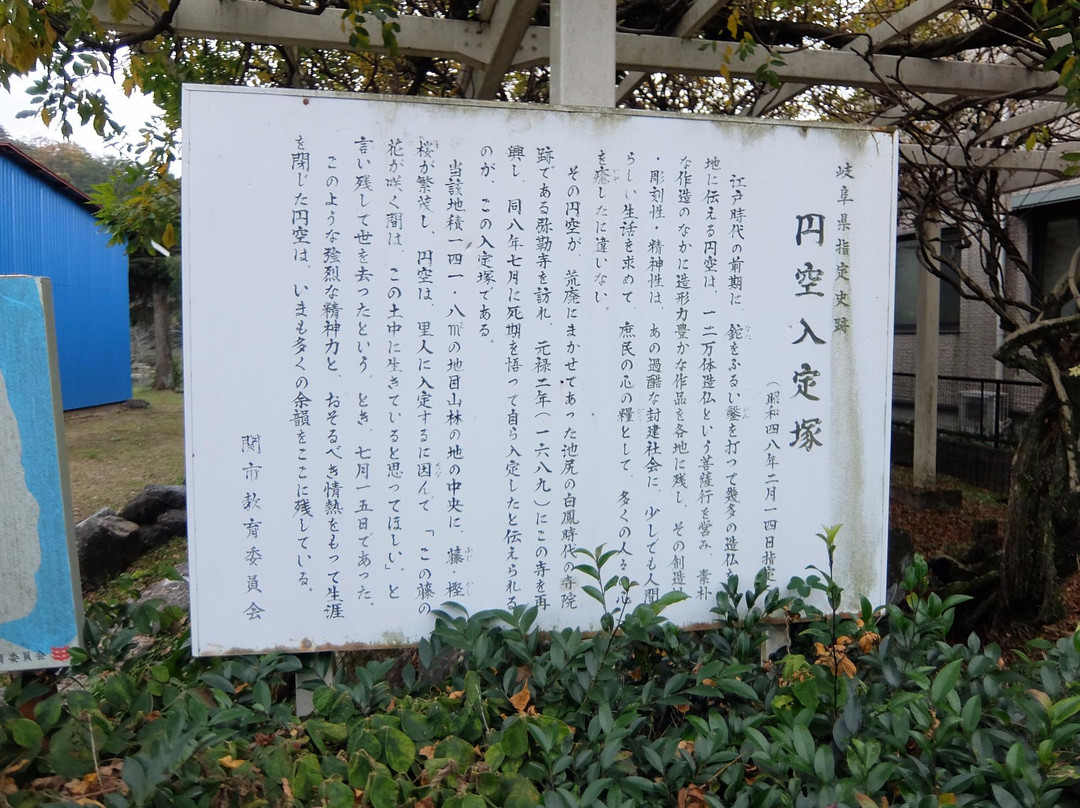 岐阜県指定史跡
円空入定塚
(昭和四八年二月一四日指定
江戸時代の前期に、鉈をふるい鑿を打って幾多の造仏を
地に伝える円空は、一二万体造仏という菩薩行を営み、素朴
な作造のなかに造形力豊かな作品を各地に残し、その創造
・彫刻性・精神性は、あの過酷な封建社会に、少しでも人間
らしい生活を求めて、庶民の心の糧として、多くの人々の心
を癒したに違いない。
その円空が、荒廃にまかせてあった池尻の白鳳時代の寺院
跡である弥勒寺を訪れ、元禄二年(一六八九)にこの寺を再
興し、同八年七月に死期を悟って自ら入定したと伝えられる
のが、この入定塚である。
当該地積一四一・八㎡の地目山林の地の中央に、藤・樫・
桜が繁茂し、円空は、里人に入定するに因んで「この藤の
花が咲く間は、この土中に生きていると思ってほしい」と
言い残して世を去ったという。とき、七月一五日であった。
このような強烈な精神力と、おそるべき情熱をもって生涯
を閉じた円空は、いまも多くの余韻をここに残している。
関市教育委員会
委員会